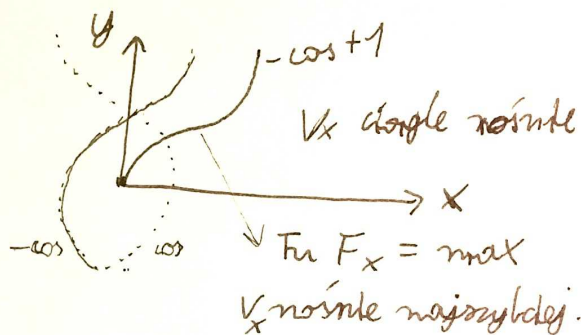 y
-cos+1
Vx ciągle rośnie
x
-cos cos
Tu Fx = max
Vx rośnie najszybciej.